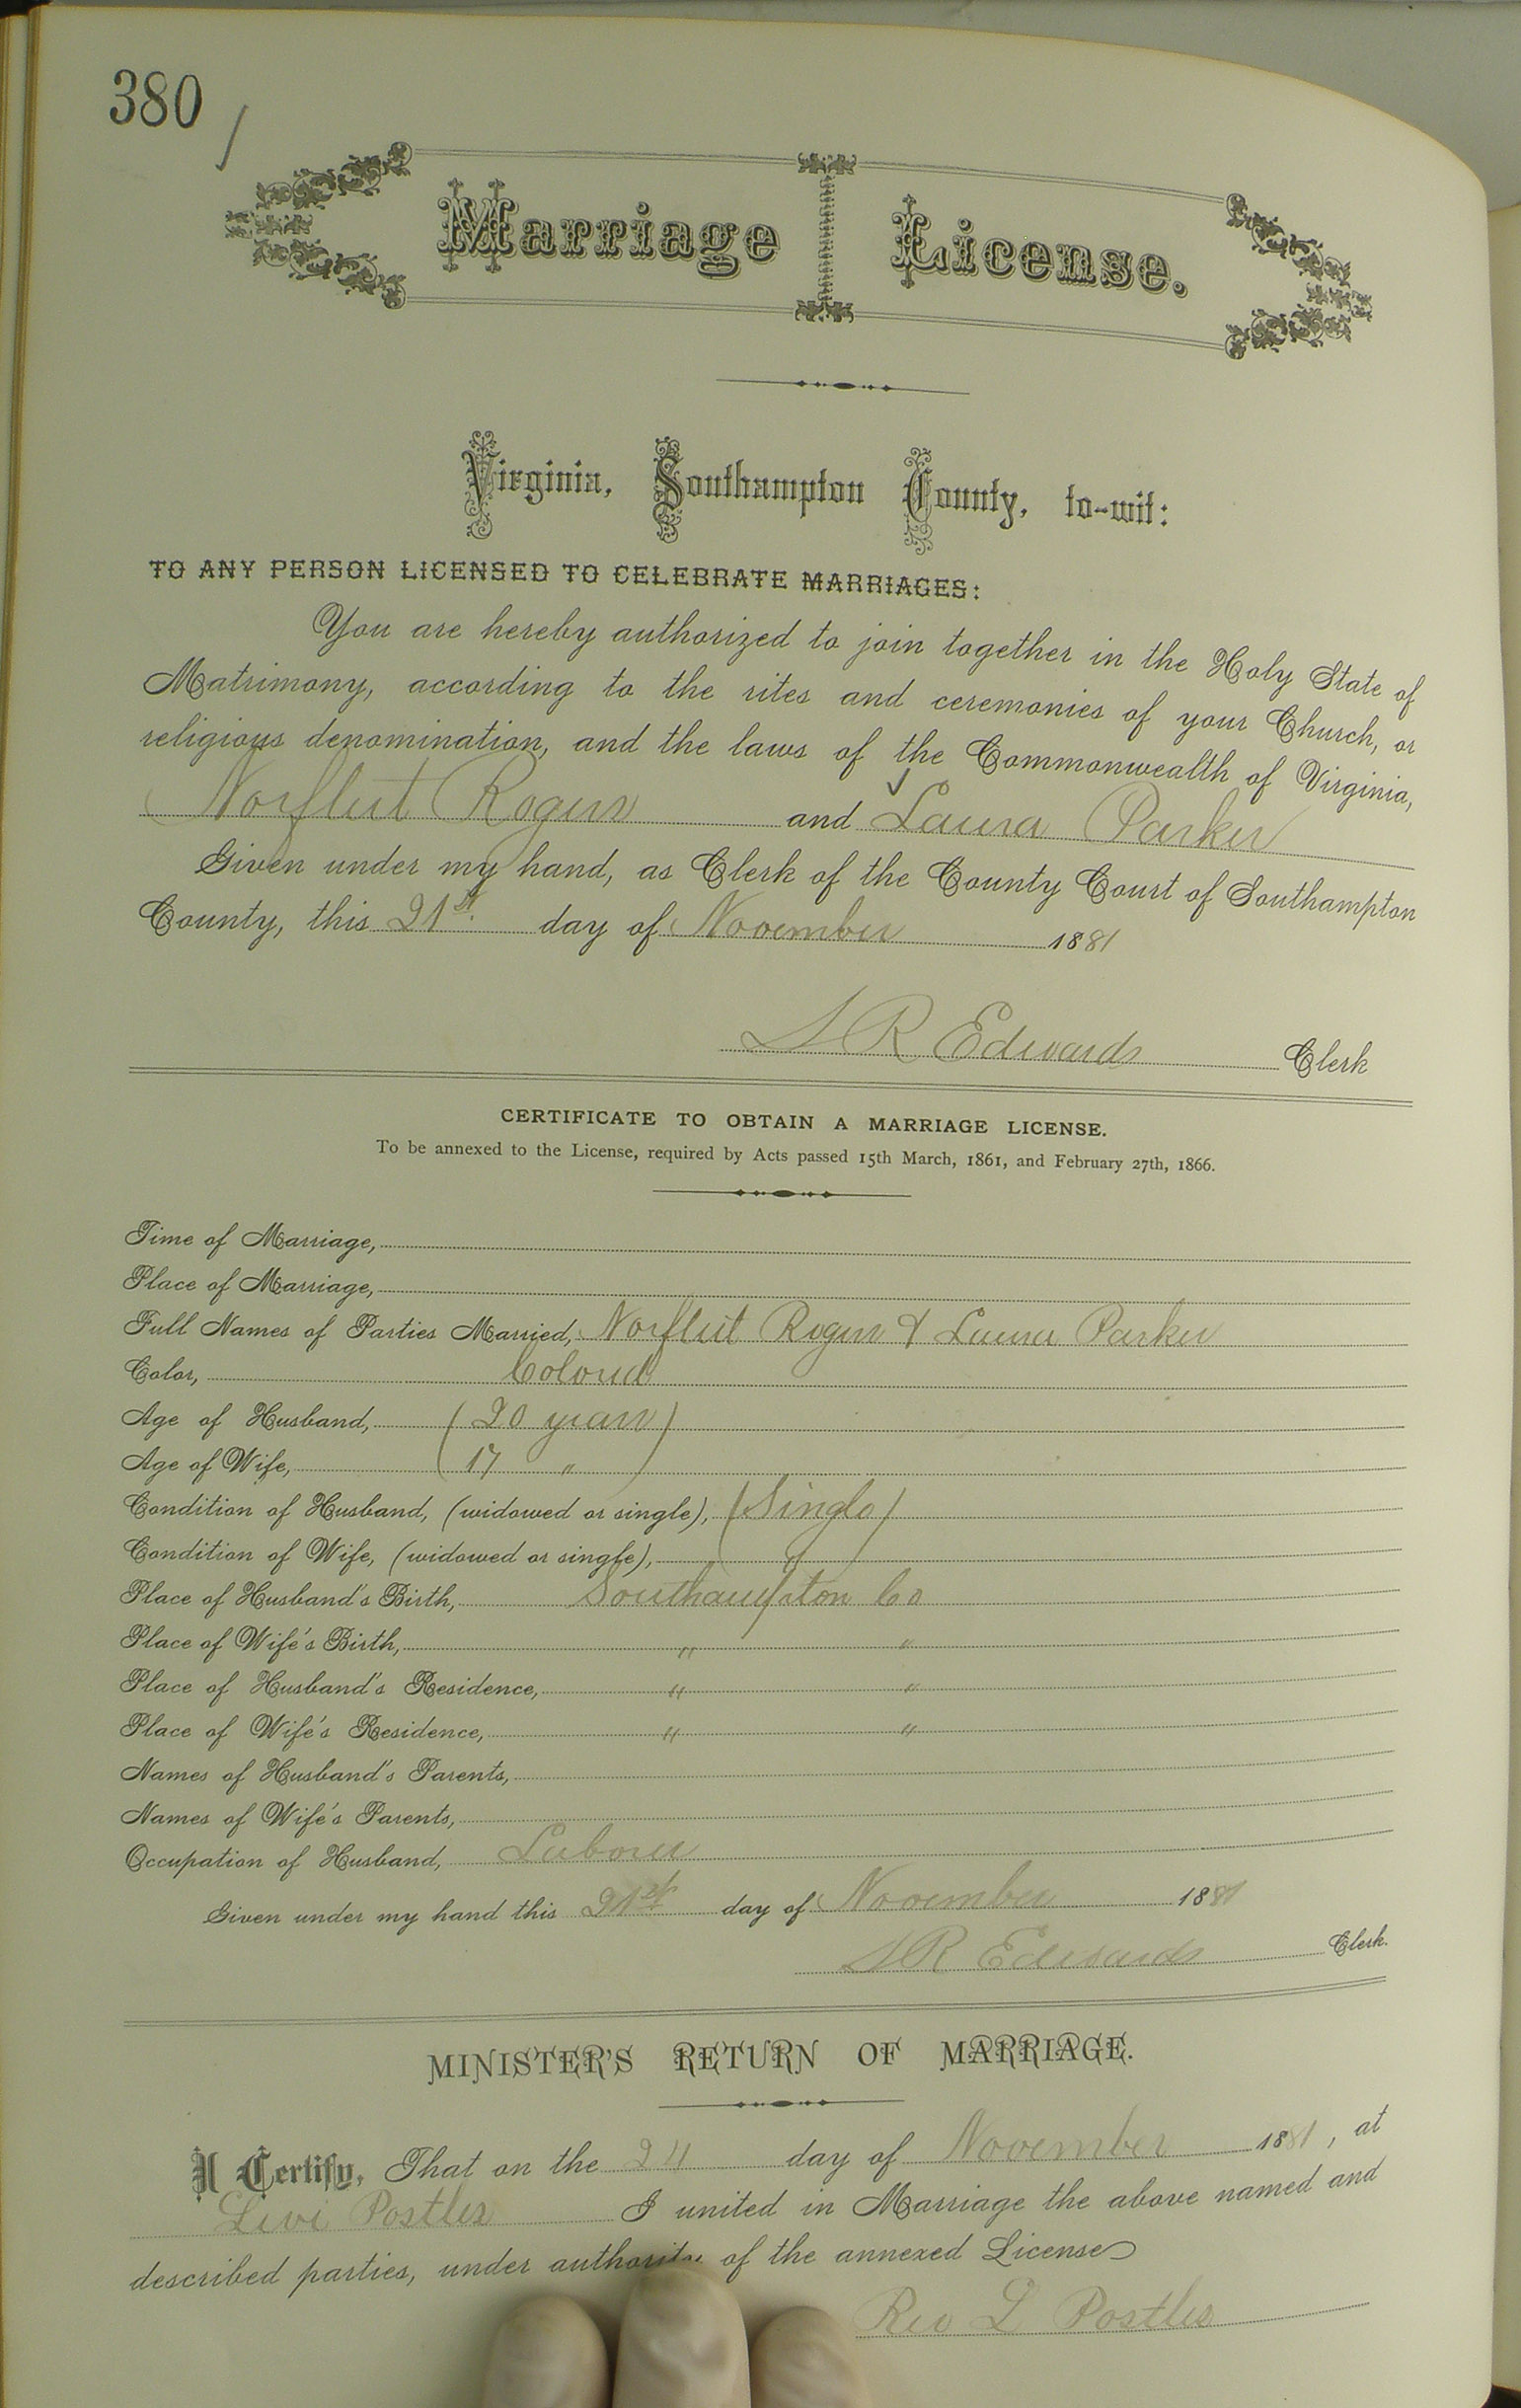 380
Marriage License.
Virginia, Southampton County, to-wit:
TO ANY PERSON LICENSED TO CELEBRATE MARRIAGES:
You are hereby authorized to join together in the Holy State of
Matrimony, according to the rites and ceremonies of your Church, or
religious denomination, and the laws of the Commonwealth of Virginia,
Norfleet Rogers and Laura Parker
Given under my hand, as Clerk of the County Court of Southampton
County, this 21st. day of November 1881
L R Edwards Clerk
CERTIFICATE TO OBTAIN A MARRIAGE LICENSE.
To be annexed to the License, required by Acts passed 15th March, 1861, and February 27th, 1866.
Time of Marriage,
Place of Marriage,
Full Names of Parties Married, Norfleet Rogers & Laura Parker
Color, Colored
Age of Husband, (20 years)
Age of Wife, (17 ")
Condition of Husband, (widowed or single), (Single)
Condition of Wife, (widowed or single), "
Place of Husband's Birth, Southampton Co
Place of Wife's Birth, " "
Place of Husband's Residence, " "
Place of Wife's Residence, " "
Names of Husband's Parents,
Names of Wife's Parents,
Occupation of Husband, Laborer
Given under my hand this 21st day of November 1881
L R Edwards Clerk.
MINISTER'S RETURN OF MARRIAGE.
I Certify, That on the 24 day of November 1881, at
Levi Postles I united in Marriage the above named and
described parties, under authority of the annexed License
Rev L Postles